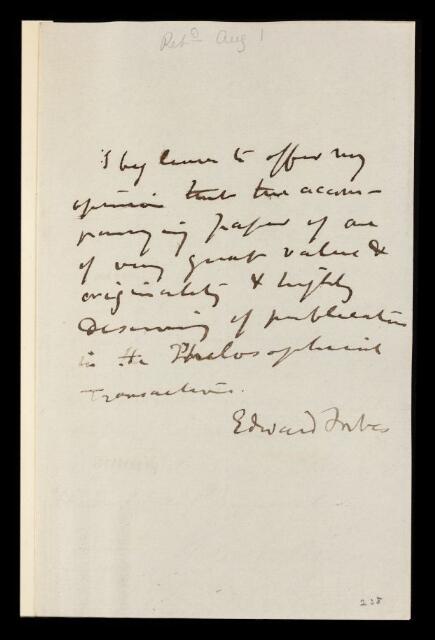 Retd Aug 1
I beg leave to offer my
opinion that the accom-
panying paper of
of very great value &
originality & highly
deserving of publication
in the Philosophical
Transactions.
Edward Forbes
228